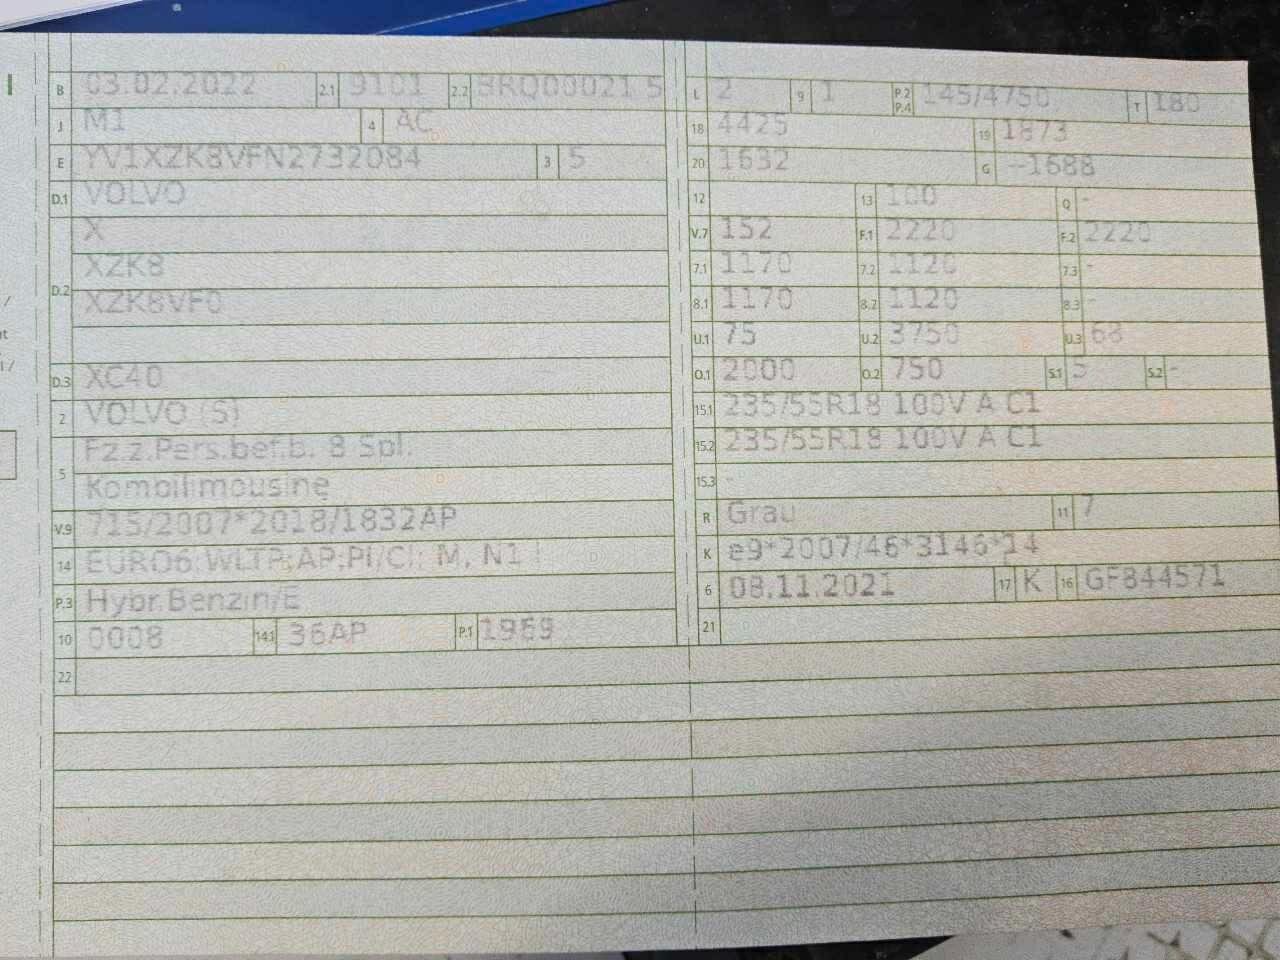 B 03.02.2022 2.1 9101 2.2 BRQ00021 5
J M1 4 AC
E YV1XZK8VFN2732084 3 5
D.1 VOLVO
X
D.2 XZK8
XZK8VF0
D.3 XC40
2 VOLVO (S)
5 Fz.z.Pers.bef.b. 8 Spl.
Kombilimousine
V.9 715/2007*2018/1832AP
14 EURO6;WLTP;AP;PI/CI; M, N1 I
P.3 Hybr.Benzin/E
10 0008 14.1 36AP P.1 1969
22
L 2 9 1 P.2 P.4 145/4750 T 180
18 4425 19 1873
20 1632 G -1688
12 13 100 Q -
V.7 152 F.1 2220 F.2 2220
7.1 1170 7.2 1120 7.3 -
8.1 1170 8.2 1120 8.3 -
U.1 75 U.2 3750 U.3 68
O.1 2000 O.2 750 S.1 5 S.2 -
15.1 235/55R18 100V A C1
15.2 235/55R18 100V A C1
15.3 -
R Grau 11 7
K e9*2007/46*3146*14
6 08.11.2021 17 K 16 GF844571
21